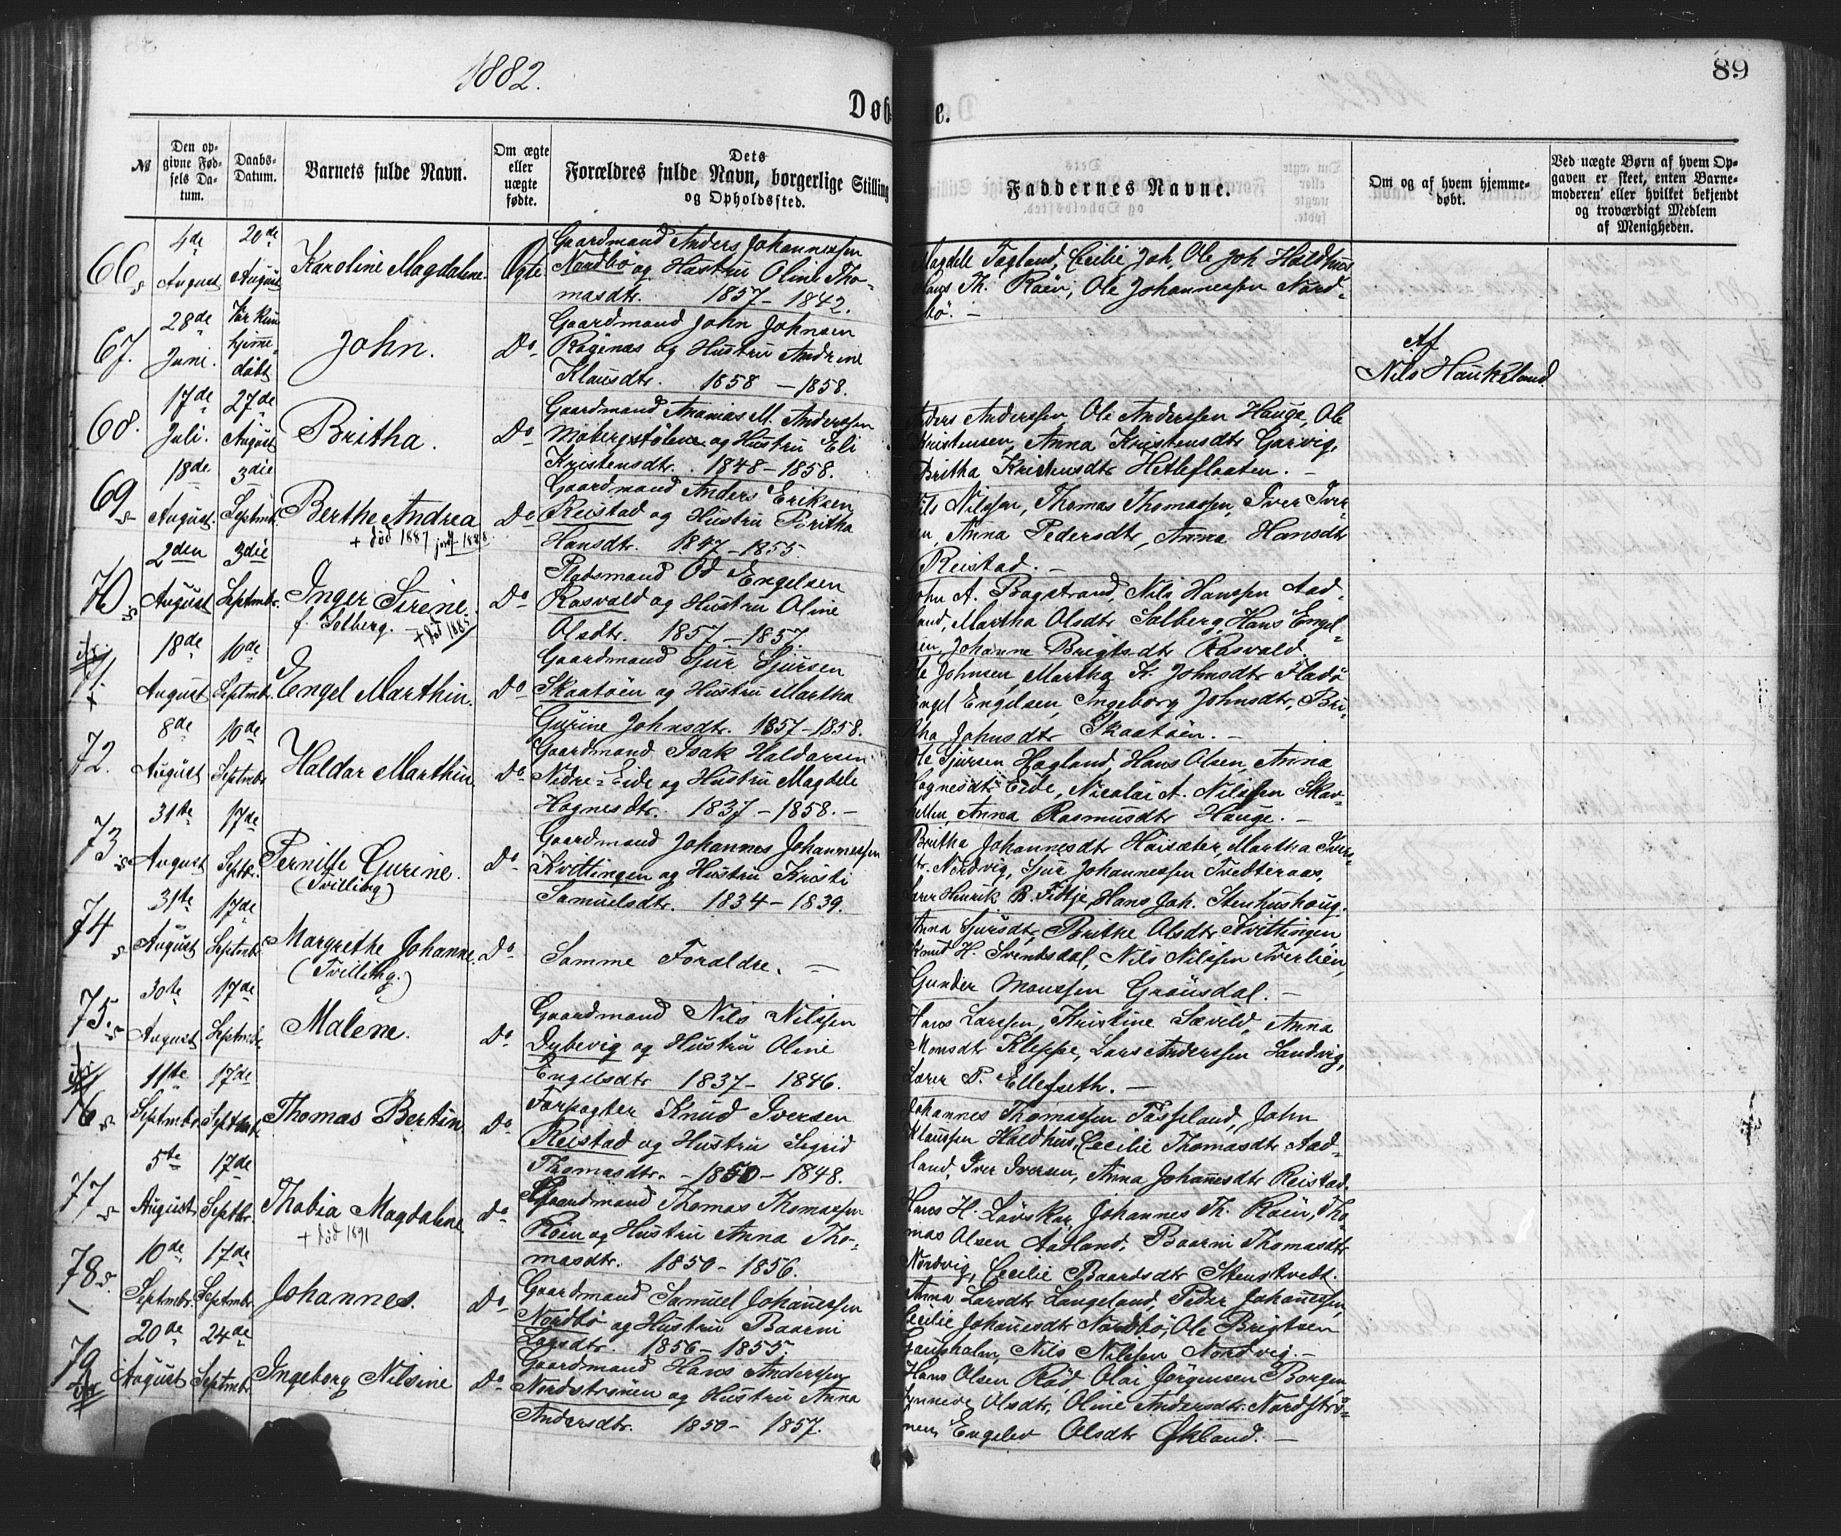 1882.
89
Døb
te.
№
Den op-
givne Fød-
sels Da-
tum.
Daabs-
Datum.
Barnets fulde Navn.
Om ægte
eller
uægte
fødte.
Dets
Forældres fulde Navn, borgerlige Stilling
og Opholdssted.
Faddernes Navne.
Om og af hvem hjemme-
døbt.
Ved uægte Børn af hvem Op-
gaven er skeet, enten Barne-
moderen eller hvilket bekjendt
og troværdigt Medlem
af Menigheden.
66
4de August
20de August
Karoline Magdalene.
Ægte
Gaardmand Anders Johannessen
Nordbø og Hustru Oline Tho-
masdtr. 1857 - 1842.
Magdele Fagland, Cecilie Joh, Ole Joh Haldhus
Hans Th. Røen, Ole Johannessen Nord-
bø. -
67.
28de Juni.
hjemme-
døbt
John.
Do
Gaardmand John Johnsen
Røgenæs og Hustru Andrine
Klausdtr. 1858 - 1858.
Af
Nils Haukeland
68.
17de Juli.
27de August
Britha.
Do
Gaardmand Ananias M. Anderssen
Mobergstølene og Hustru Eli
Kristensdtr. 1848 - 1858.
Anders Anderssen, Ole Anderssen Hauge, Ole
Kristensen, Anna Kristensdtr Garvig,
Britha Kristensdtr Hetleflaaten. -
69
18de August.
3die Septmb.
Berthe Andrea
+ død 1887
Do
Gaardmand Anders Eriksen
Reistad og Hustru Britha
Hansdtr. 1847 - 1855
Nils Nilssen, Thomas Thomassen, Iver Iver-
sen, Anna Pedersdtr, Anna Hansdtr
Reistad. -
70
2den August
3die Septmbr.
Inger Sirine.
f. Solberg. + død 1885
Do
Pladsmand Od Engelsen
Rasvald og Hustru Oline
Olsdtr. 1857 - 1857.
John A. Bogstrand, Nils Hanssen Aad-
land, Martha Olsdtr Salberg, Hans Engel-
sen, Johanne Brigtsdtr Rasvald.
71.
18de August
10de Septmbr.
Engel Marthin.
Do
Gaardmand Sjur Sjursen
Skaatøen og Hustru Martha
Gurine Johnsdtr. 1857 - 1858.
Ole Johnsen, Martha K. Johnsdtr Fladø
Engel Engelsen, Ingeborg Johnsdtr, Bri-
tha Johnsdtr Skaatøen. -
72.
8de August
10de Septmbr
Haldor Marthin
Do
Gaardmand Isak Haldorsen
Nedre-Eide og Hustru Magdele
Hognesdtr. 1837 - 1858. -
Ole Sjursen Hagland, Hans Olsen, Anna
Hognesdtr Eide, Nicolai A. Nilssen Skav-
hellen, Anna Rasmusdtr Hauge. -
73
31te August
17de Septbr.
Pernille Gurine.
(Tvilling)
Do
Gaardmand Johannes Johannessen
Kvittingen og Hustru Kristi
Samuelsdtr. 1834 - 1839.
Britha Johannesdtr Høisæter, Martha Ivers-
dtr. Nordvig, Sjur Johannessen Tvedteraas,
Lærer Henrik B. Fidtje, Hans Joh. Stenhushoug.
74
31te August
17de Septmbr.
Margrethe Johanne.
(Tvilling.)
Do
Samme Forældre. -
Anna Sjursdtr, Brithe Olsdtr Kvittingen
Knud H. Svendsdal, Nils Nilssen Tverlien,
Gunder Monssen Grøusdal. -
75.
30te August
17de Septmbr.
Malene.
Do
Gaardmand Nils Nilssen
Dybevig og Hustru Oline
Engelsdtr 1837 - 1846.
Hans Larssen, Kristine Sævild, Anna
Monsdtr Kleppe, Lars Anderssen Sandvig,
Lærer P. Ellefseth. -
76
11te Septmbr.
17de Septmbr
Thomas Bertin
Do
Forpagter Knud Iversen
Reistad og Hustru Sigrid
Thomasdtr. - 1850 - 1848.
Johannes Thomassen Tøsseland, John
Klaussen Haldhus, Cecilie Thomasdtr Aad-
land, Iver Iversen, Anna Johannesdtr Reistad.
77
5te August
17de Septbr.
Thobia Magdalene
+ død 1891
do
Gaardmand Thomas Thomassen
Røen og Hustru Anna Tho-
masdtr. 1850 - 1856.
Hans H. Løvskar, Johannes Th. Røen, Tho-
mas Olsen Aadland, Baarni Thomasdtr
Nordvig, Cecilie Baardsdtr Stenstvedt.
78
10de Septmbr.
17de Septmbr
Johannes.
Do
Gaardmand Samuel Johannessen
Nordbø og Hustru Baarni
Larsdtr. 1856 - 1855.
Anna Larsdtr Langeland, Peder Johannessen,
Cecilie Johannesdtr Nordbø, Ole Brigtsen
Gaupholm, Nils Nilssen Nordvig. -
79
20de August
24de Septmbr.
Ingeborg Nilsine
Do
Gaardmand Hans Anderssen
Nordstrønen og Hustru Anna
Andersdtr. 1850 - 1857.
Hans Olsen Rød, Olai Jørgensen Borgen
Synneve Olsdtr, Oline Andersdtr Nordstrø-
nen, Engelev Olsdtr Økland. -